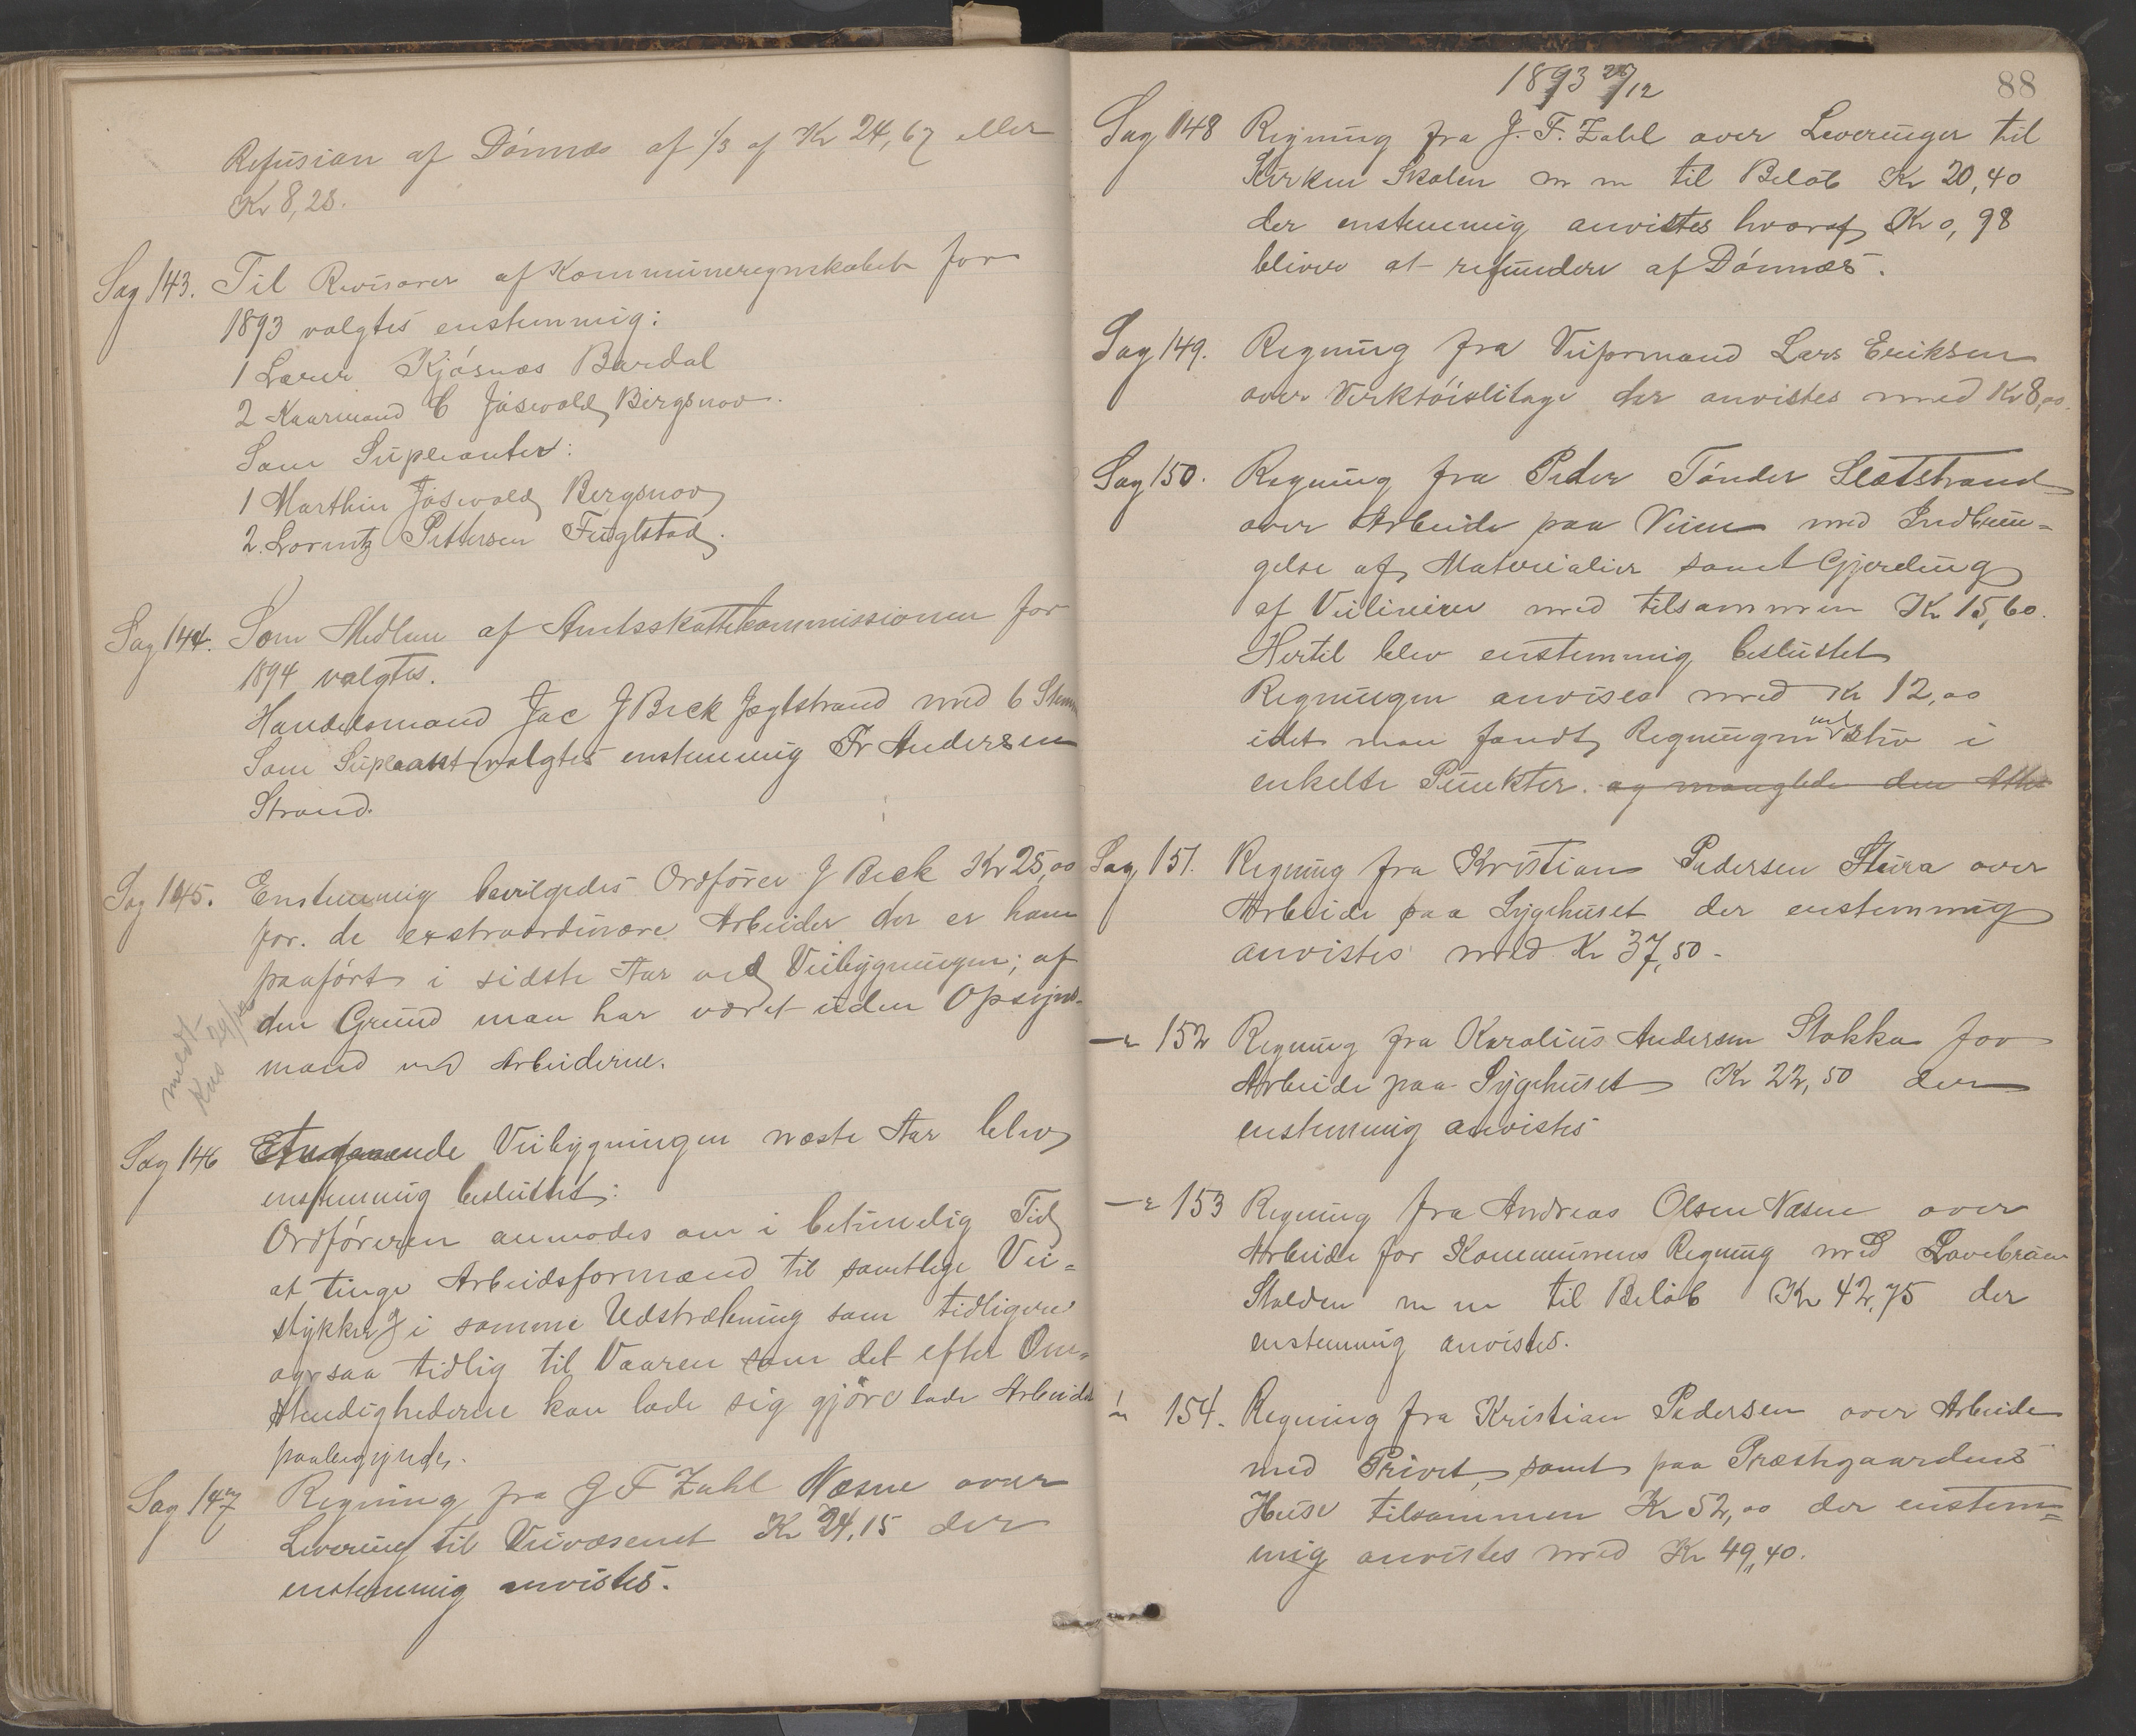 Refusion af Dönnæs af 1/3 af Kr 24,67 eller
Kr 8,23.
Sag 143. Til Revisorer af Kommuneregnskabet for
1893 valgtes enstemmig:
1 Lærer Kjösnæs Bardal
2 Kaarmand C Jåsvold Bergsnov.
Som Supleanter:
1 Marthin Jåsvold Bergsnov
2. Lorentz Pettersen Fuglstad.
Sag 144. Som Medlem af Amtsskattekommissionen for
1894 valgtes.
Handelsmand Jac J Beck Jægtstrand med 6 Stem
Som Supleant valgtes enstemmig Fr Andersen
Strand.
Sag 145. Enstemmig bevilgedes Ordförer J Beck Kr 25,00
for de exstraordinære Arbeider der er ham
paafört i sidste Aar ved Veibygningen; af
den Grund man har været uden Opsyns-
mand ved Arbeiderne.
Sag 146 Veibygningen næste Aar blev
enstemmig besluttet:
Ordföreren anmodes om i betimelig Tid
at tinge Arbeidsformænd til samtlige Vei=
stykker i samme Udstrækning som tidligere
og saa tidlig til Vaaren som det efter Om=
stendighederne kan lade sig gjöre lade Arbeidet
paabegynde.
Sag 147 Regning fra J F Zahl Næsne over
Levering til Veivæsenet Kr 24,15 der
enstemmig anvistes.
88
1893 28/12
Sag 148 Regning fra J. F. Zahl over Leveringer til
Kirken Skolen m m til Belöb Kr 20,40
der enstemmig anvistes hvoraf Kr 0,98
bliver at refundere af Dönnæs.
Sag 149. Regning fra Veiformand Lars Eriksen
over Verktöislitage der anvistes med Kr 8,00.
Sag 150. Regning fra Peder Tönder Sletstrand
over Arbeide paa Veien med Indbrin=
gelse af Materialier samt Gjerding
af Veilinier med tilsammen Kr 15,60.
Hertil blev enstemmig besluttet
Regningen anvises med Kr 12,00
idet man fandt Regningen vel stiv i
enkelte Punkter. og manglede den Atte
Sag 151. Regning fra Kristian Pedersen Stura over
Arbeide paa Sygehuset der enstemmig
anvistes med Kr 37,50 -
152 Regning fra Karolius Andersen Stokka for
Arbeide paa Sygehuset Kr 22,50 der
enstemmig anvistes
153 Regning fra Andreas Olsen Næsne over
Arbeide for Kommunens Regning med
Stalden m m til Belöb Kr 42,75 der
enstemmig anvistes.
154. Regning fra Kristian Pedersen over Arbeide
med Privet, samt paa Præstegaardens
Huse tilsammen Kr 52,00 der enstem=
mig anvistes med Kr 49,40.